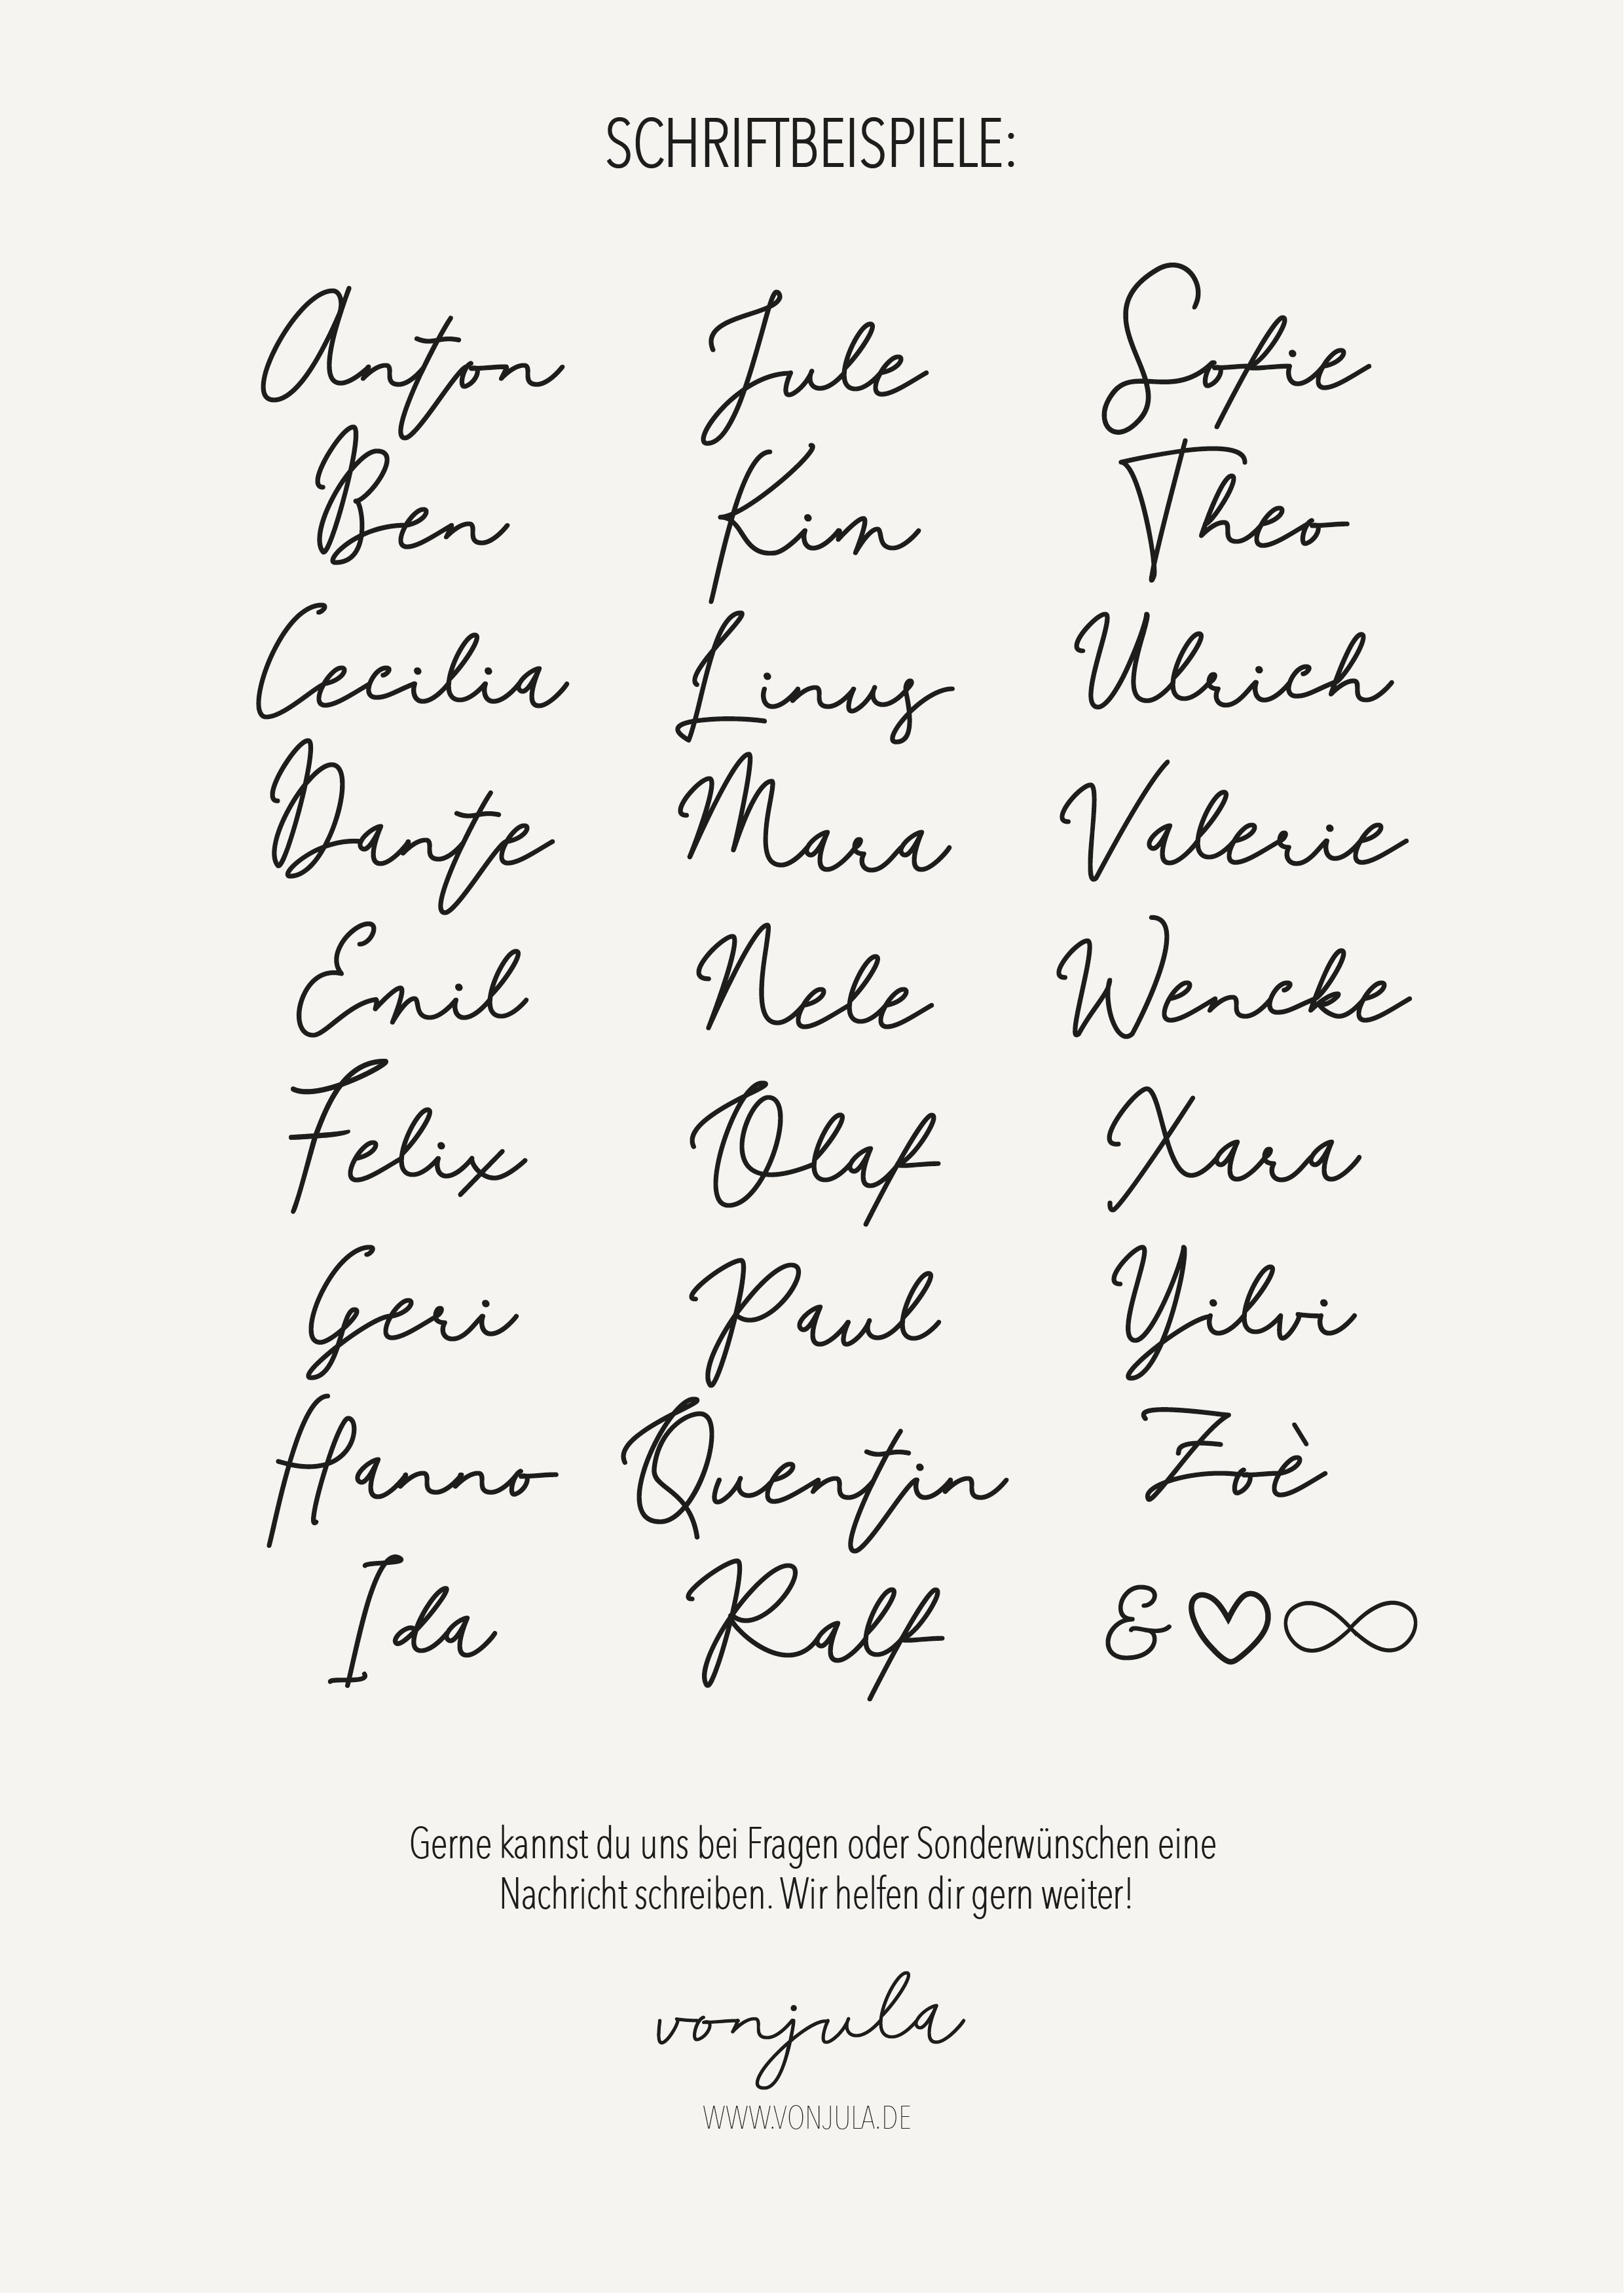 SCHRIFTBEISPIELE:
Anton Jule Sofie
Ben Kim Theo
Cecilia Linus Ulrich
Dante Mara Valerie
Emil Nele Wencke
Felix Olaf Xara
Geri Paul Yilvi
Hanno Quentin Zoè
Ida Ralf & ♡ ∞
Gerne kannst du uns bei Fragen oder Sonderwünschen eine
Nachricht schreiben. Wir helfen dir gern weiter!
vonjula
WWW.VONJULA.DE